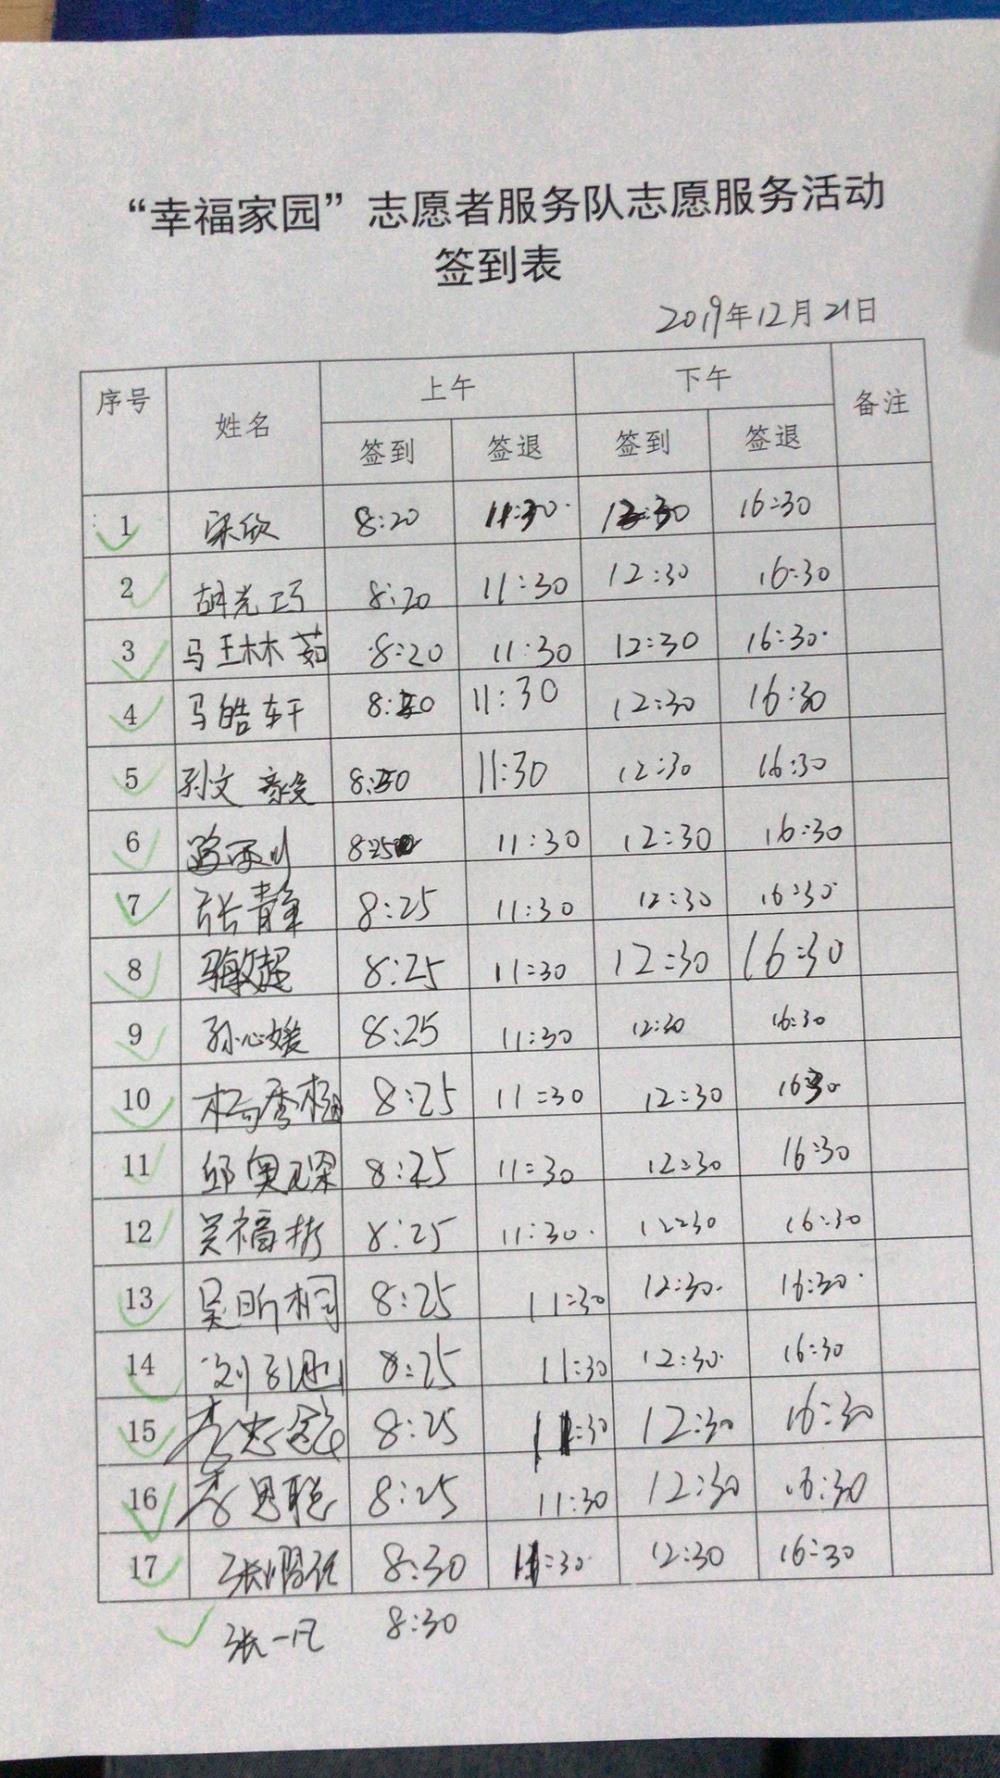 “幸福家园”志愿者服务队志愿服务活动
签到表
2019年12月21日
序号 姓名 上午 下午 备注
签到 签退 签到 签退
1 宋欣 8:20 11:30 12:30 16:30
2 胡光巧 8:20 11:30 12:30 16:30
3 马王林茹 8:20 11:30 12:30 16:30
4 马皓轩 8:20 11:30 12:30 16:30
5 孙文毅 8:20 11:30 12:30 16:30
6 8:25 11:30 12:30 16:30
7 张青肇 8:25 11:30 12:30 16:30
8 马敏超 8:25 11:30 12:30 16:30
9 孙心媛 8:25 11:30 12:30 16:30
10 杨秀 8:25 11:30 12:30 16:30
11 邱奥琛 8:25 11:30 12:30 16:30
12 吴福 8:25 11:30 12:30 16:30
13 吴昕桐 8:25 11:30 12:30 16:30
14 刘 8:25 11:30 12:30 16:30
15 李忠 8:25 11:30 12:30 16:30
16 李思聪 8:25 11:30 12:30 16:30
17 张 8:30 11:30 12:30 16:30
张一凡 8:30